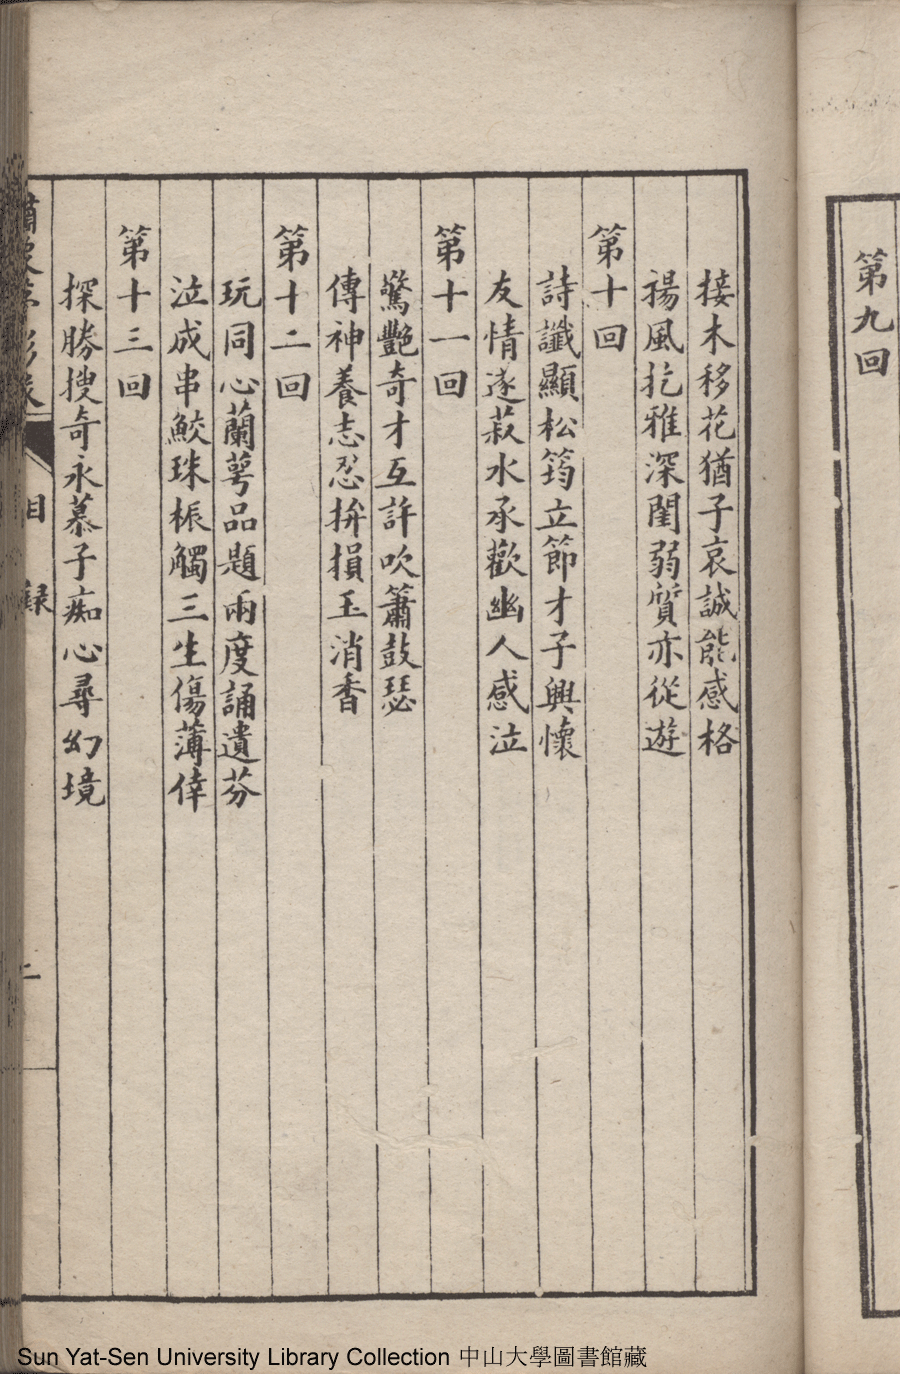 第九回
接木移花猶子哀誠能感格
揚風扢雅深閨弱質亦從遊
第十回
詩讖顯松筠立節才子興懷
友情遂菽水承歡幽人感泣
第十一回
驚艷奇才互許吹簫鼓瑟
傳神養志忍拚損玉消香
第十二回
玩同心蘭萼品題兩度誦遺芬
泣成串鮫珠棖觸三生傷薄倖
第十三回
探勝搜奇永慕子痴心尋幻境
目錄
二
Sun Yat-Sen University Library Collection 中山大學圖書館藏